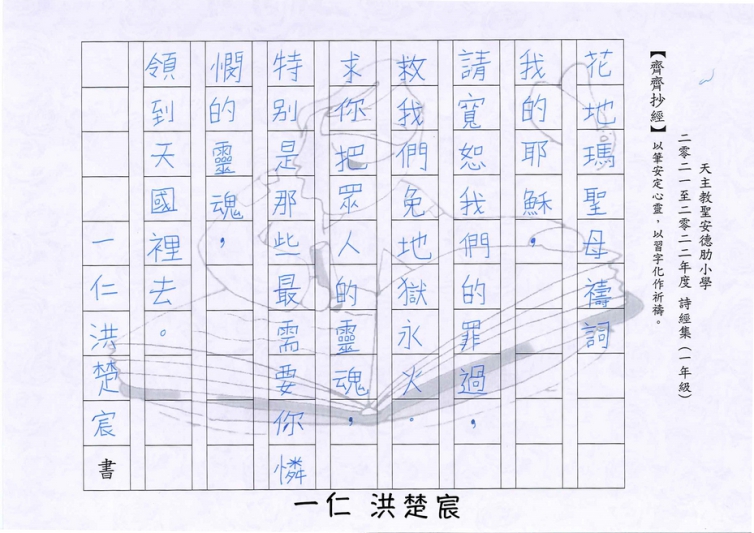 天主教聖安德肋小學
二零二一至二零二二年度 詩經集(一年級)
【齊齊抄經】以筆安定心靈，以習字化作祈禱。
花地瑪聖母禱詞
我的耶穌，
請寬恕我們的罪過，
救我們免地獄永火。
求你把眾人的靈魂，
特別是那些最需要你憐
憫的靈魂，
領到天國裡去。
一仁洪楚宸書
一仁 洪楚宸